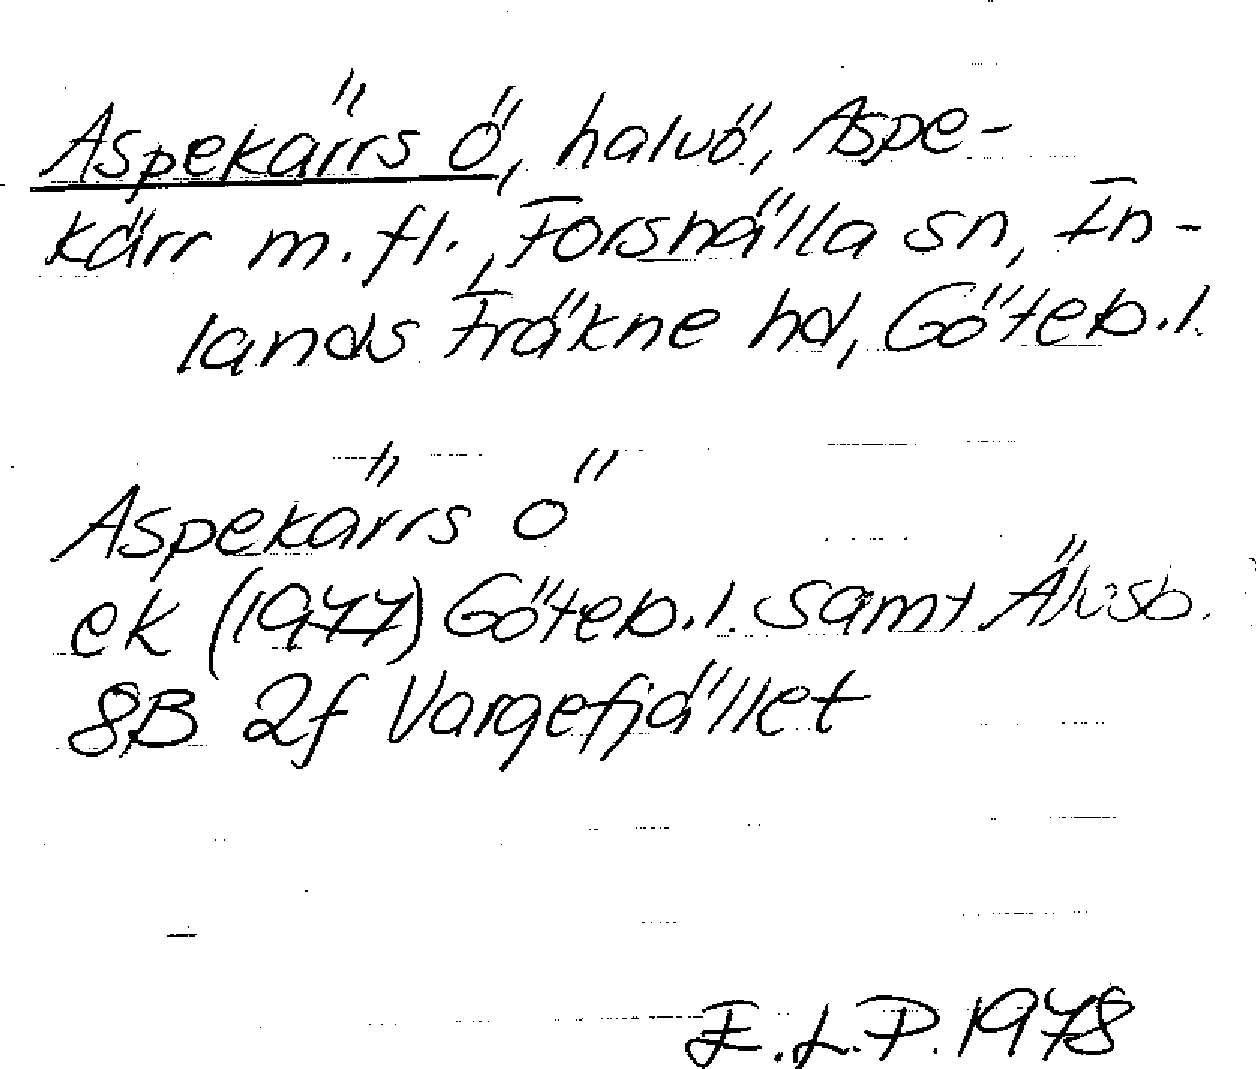 Aspekärrs ö, halvö, Aspe-
kärr m.fl., Forshälla sn, In-
lands Fräkne hd, Göteb.l.
Aspekärrs ö
ek (1977) Göteb.l. samt Älvsb.
8B 2f Vargefjället
E.L.P. 1978